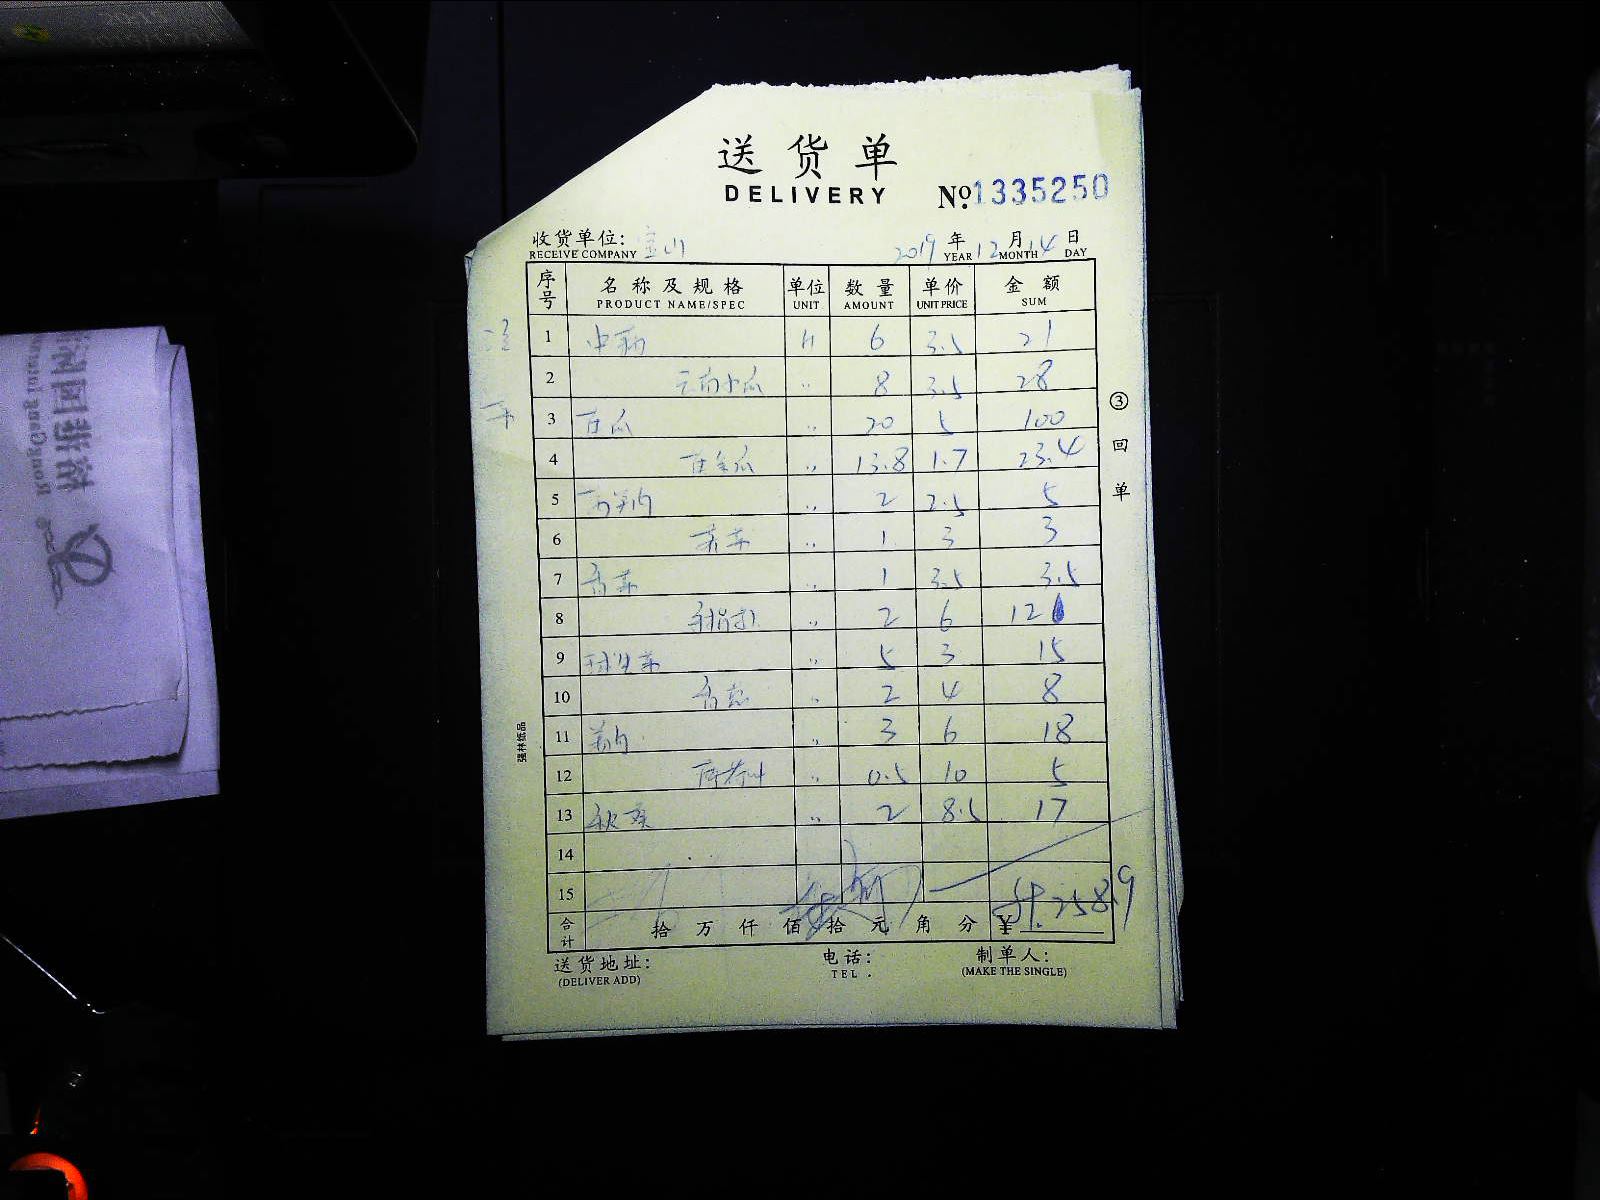 送货单
DELIVERY
№ 1335250
收货单位: 宝山
RECEIVE COMPANY
2019 年 12 月 14 日
YEAR MONTH DAY
序号 名称及规格 单位 数量 单价 金额
PRODUCT NAME/SPEC UNIT AMOUNT UNIT PRICE SUM
1 6 3.5 21
2 云南小瓜 〃 8 3.5 28
3 〃 20 5 100
4 〃 13.8 1.7 23.4
5 〃 2 2.5 5
6 〃 1 3 3
7 香菜 〃 1 3.5 3.5
8 〃 2 6 12
9 球生菜 〃 5 3 15
10 香葱 〃 2 4 8
11 〃 3 6 18
12 〃 0.5 10 5
13 〃 2 8.5 17
14
15
合计 拾 万 仟 佰 拾 元 角 分 ¥ 258.9
送货地址: 电话: 制单人:
(DELIVER ADD) TEL. (MAKE THE SINGLE)
③回单
强林纸品